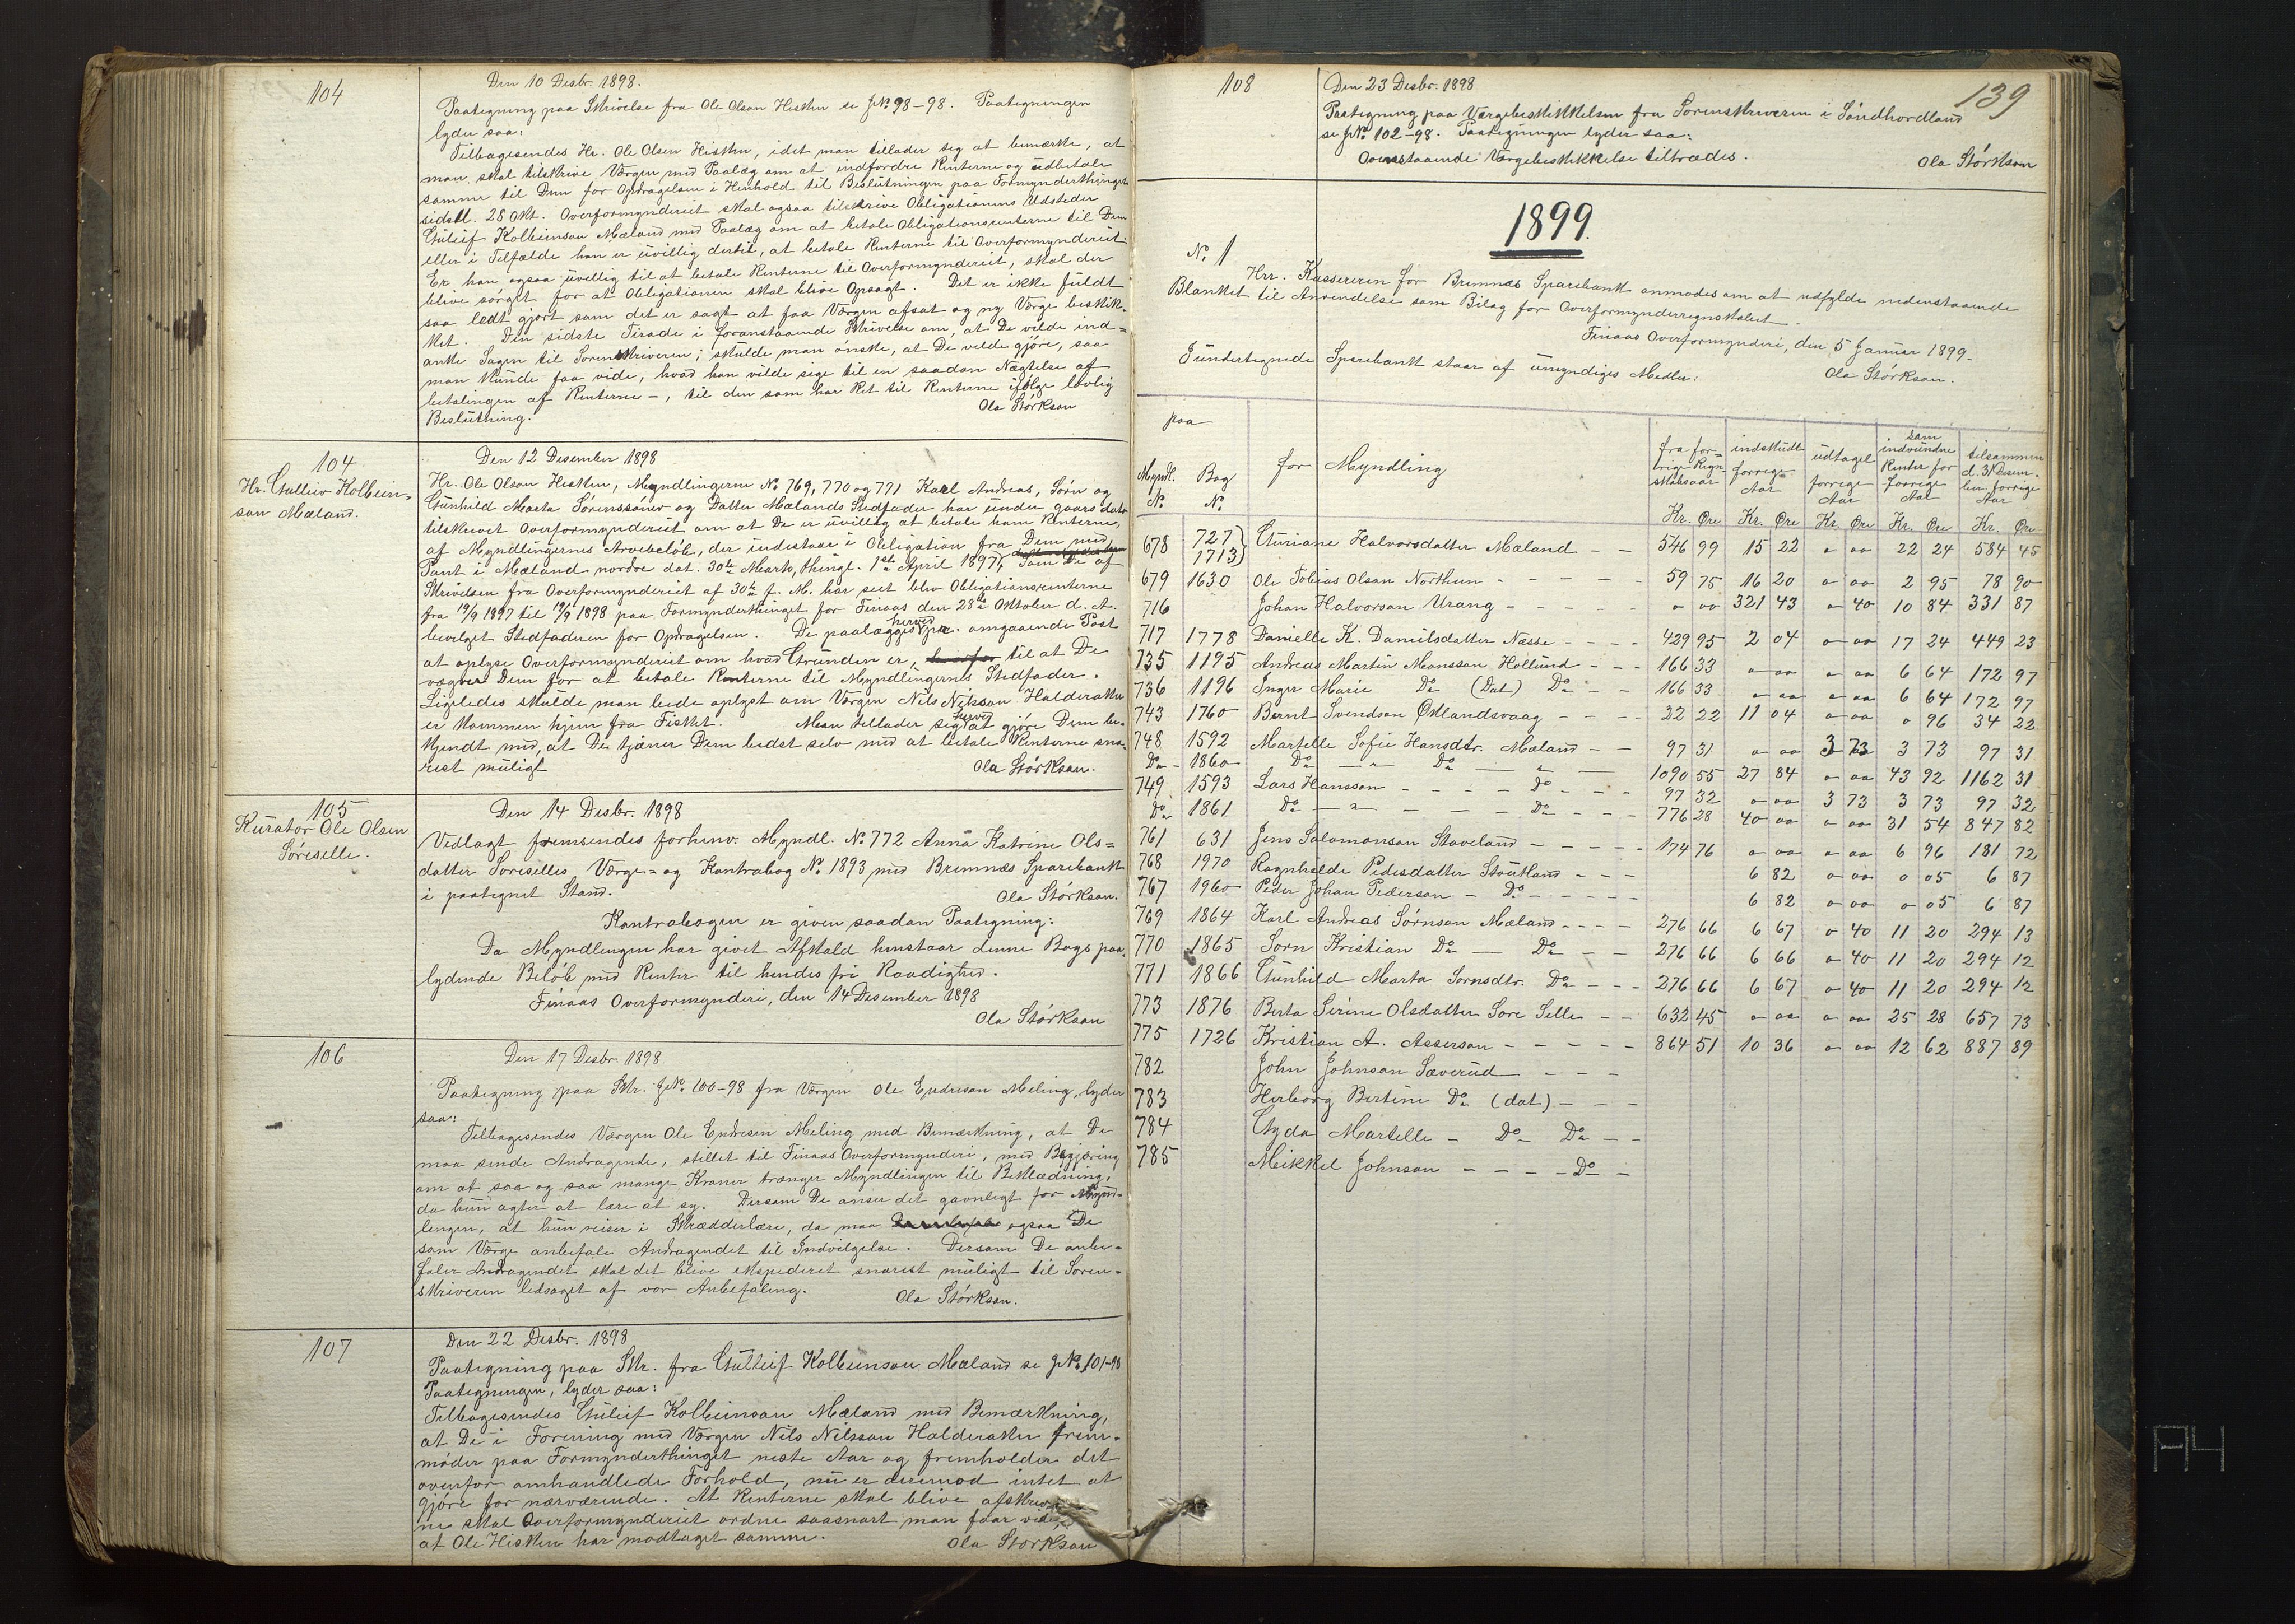 104
Den 10 Desbr. 1898.
Paategning paa Skrivelse fra Ole Olson Hisken se JNo 98-98. Paategningen
lyder saa:
Tilbagesendes Hr. Ole Olsen Hisken, idet man tillader sig at bemærke, at
man skal tilskrive Værgen med Paalæg om at indfordre Renterne og udbetale
samme til Dem for Opdragelsen i Henhold til Beslutningen paa Formynderthinget
sidstl. 28 Okt. Overformynderiet skal ogsaa tilskrive Obligationens Udsteder
Gulleif Kolbeinson Mæland med Paalæg om at betale Obligationsrenterne til Dem
eller i Tilfælde han er uvillig dertil, at betale Renterne til Overformynderiet.
Er han ogsaa uvillig til at betale Renterne til Overformynderiet, skal der
blive sørget for at Obligationen skal blive Opsagt. Det er ikke fuldt
saa ledt gjort som det er sagt at faa Værgen afsat og ny Værge beskik-
ket. Den sidste Tirade i foranstaaende Skrivelse om, at De vilde ind=
anke Sagen til Sorenskriveren; skulde man ønske, at De vilde gjøre, saa
man kunde faa vide, hvad han vilde sige til en saadan Nægtelse af
betalingen af Renterne -, til den som har Ret til Renterne ifølge lovlig
Beslutning.
Ola Størkson
104
Hr. Gulleiv Kolbein-
son Mæland.
Den 12 Desember 1898
Hr. Ole Olson Hisken, Myndlingerne No 769, 770 og 771 Karl Andreas, Sørn og
Gunhild Marta Sørenssøner og Datter Mælands Stedfader har under gaars dato
tilskrevet Overformynderiet om at De er uvillig at betale ham Renterne,
af Myndlingernes Arvebeløb, der indestaar i Obligation fra Dem med
Pant i Mæland nordre dat. 30te Marts, thingl. 1ste April 1897, Som De af
Skrivelsen fra Overformynderiet af 30te f. M. har seet blev Obligationsrenterne
fra 19/9 1897 til 19/9 1898 paa Formynderthinget for Finaas den 28de Oktober d. A.
bevilget Stedfaderen for Opdragelsen. De paalægges herved pr. omgaaende Post
at oplyse Overformynderiet om hvad Grunden er, til at De
vægrer Dem for at betale Renterne til Myndlingernes Stedfader.
Ligeledes skulde man bede oplyst om Værgen Nils Nilsson Halderaker
er kommen hjem fra Fisket. Man tillader sig herved at gjøre Dem be-
kjendt med, at De tjener Dem bedst selv med at betale Renterne sna-
rest muligt
Ola Størkson.
105
Kurator Ole Olsen
Søreselle.
Den 14 Desbr. 1898
Vedlagt fremsendes forhenv. Myndl. No 772 Anna Katrine Ols=
datter Soreselles Værge= og Kontrabog No 1893 med Bremnæs Sparebank
i paategnet Stand.
Ola Størkson.
Kontrabogen er given saadan Paategning:
Da Myndlingen har givet Afkald henstaar denne Bogs paa-
lydende Beløb med Renter til hendes fri Raadighed.
Finaas Overformynderi, den 14 Desember 1898
Ola Størkson
106
Den 17 Desbr. 1898
Paategning paa Skr. JNo. 100-98 fra Værgen Ole Endreson Meling, lyder
saa:
Tilbagesendes Værgen Ole Endresen Meling med Bemærkning, at De
maa sende Andragende, stillet til Finaas Overformynderi, med Begjæring
om at saa og saa mange Kroner trænger Myndlingen til Beklædning,
da hun agter at lære at sy. Dersom De anser det gavnligt for Mynd-
lingen, at hun reiser i Skrædderlære, da maa ogsaa De
som Værge anbefale Andragendet til Indvilgelse. Dersom De anbe-
faler Andragendet skal det blive ekspederet snarest muligt til Soren-
skriveren ledsaget af vor Anbefaling.
Ola Størkson.
107
Den 22 Desbr. 1898
Paategning paa Skr. fra Gulleif Kolbeinson Mæland se JNo. 101-98
Paategningen, lyder saa:
Tilbagesendes Gulleif Kolbeinson Mæland med Bemærkning,
at De i Forening med Værgen Nils Nilsson Halderaker frem-
møder paa Formynderthinget neste Aar og fremholder det
ovenfor omhandlede Forhold, nu er derimod intet at
gjøre for nærværende. At Renterne skal blive afskrev
ne skal Overformynderiet ordne saasnart man faar vide,
at Ole Hisken har modtaget samme.
Ola Størkson
108
139
Den 23 Desbr. 1898
Paategning paa Værgebeskikkelsen fra Sorenskriveren i Søndhordland
se JNo. 102-98. Paategningen lyder saa:
Ovenstaaende Værgebeskikkelse tiltrædes.
Ola Størkson
1899.
No. 1
Hrr. Kassereren for Bremnæs Sparebank anmodes om at udfylde nedenstaaende
Blanket til Anvendelse som Bilag for Overformynderregnskabet.
Finaas Overformynderi, den 5 Januar 1899.
Ola Størkson.
I undertegnede Sparebank staar af umyndiges Midler:
paa
Myndl. No. Bog No. for Myndling fra for- rige Regn- skabsaar indskudt forrige Aar udtaget forrige Aar som indvundne Renter for forrige Aar tilsammen d. 31 Desem- ber forrige Aar
Kr. Øre Kr. Øre Kr. Øre Kr. Øre Kr. Øre
678 727 1713 Guriane Halvorsdatter Mæland - - 546 99 15 22 " "" 22 24 584 45
679 1630 Ole Tobias Olson Northun - - - - - 59 75 16 20 " "" 2 95 78 90
716 Johan Halvorson Urang - - - - - " "" 321 43 " 40 10 84 331 87
717 1778 Danielle K. Danielsdatter Næsse - - - - 429 95 2 04 " "" 17 24 449 23
735 1195 Andreas Martin Monsson Hollund - - - 166 33 " "" " "" 6 64 172 97
736 1196 Inger Marie Do (Dat) Do - - 166 33 " "" " "" 6 64 172 97
743 1760 Bernt Svendson Øklandsvaag - - - - 22 22 11 04 " "" " 96 34 22
748 1592 Martelle Sofie Hansdtr. Mæland - - 97 31 " "" 3 73 3 73 97 31
Do - 1860 Do - " - Do - " - 1090 55 27 84 " "" 43 92 1162 31
749 1593 Lars Hansson - - - - Do - - - 97 32 " "" 3 73 3 73 97 32
Do 1861 Do - " - - - Do - - - 776 28 40 "" " "" 31 54 847 82
761 631 Jens Salomonson Stoveland - - - - - 174 76 " "" " "" 6 96 181 72
768 1970 Ragnhilde Pedersdatter Stoutland - - - 6 82 " "" " 05 6 87
767 1960 Peder Johan Pederson - Do - - - - - 6 82 " "" " 05 6 87
769 1864 Karl Andreas Sørnson Mæland - - - - 276 66 6 67 " 40 11 20 294 13
770 1865 Sørn Kristian Do - Do - - 276 66 6 66 " 40 11 20 294 12
771 1866 Gunhild Marta Sornsdtr. Do - - - 276 66 6 67 " 40 11 20 294 12
773 1876 Berta Serine Olsdatter Sore Selle - - 632 45 " "" " "" 25 28 657 73
775 1726 Kristian A. Asserson - - - - - 864 51 10 36 " "" 12 62 887 89
782 John Johnson Sæverud - - -
783 Herborg Bertine Do (dat) - - -
784 Gyda Martelle - Do - Do - -
785 Mikkel Johnson - - - - Do -